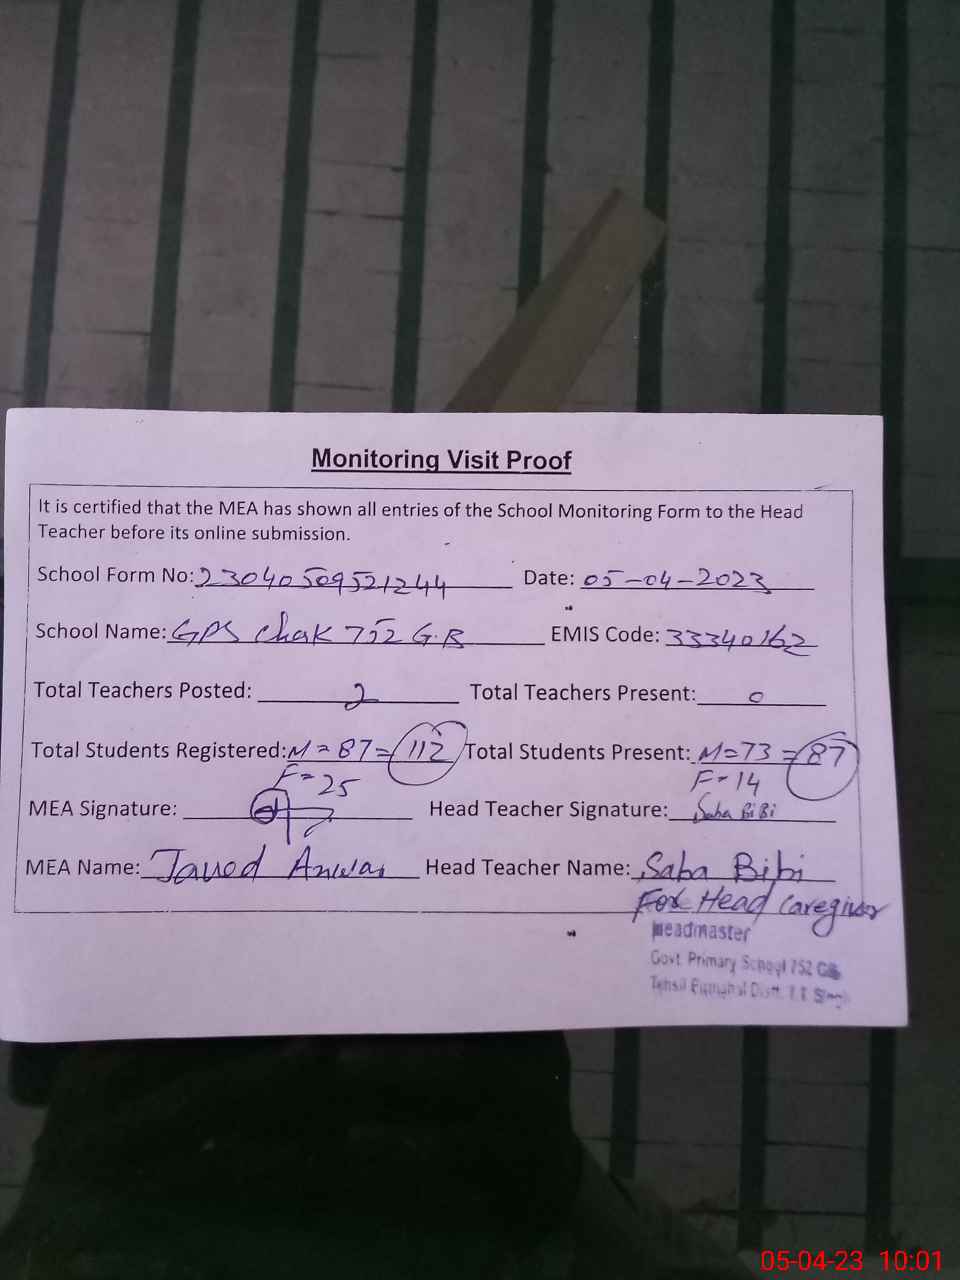 Monitoring Visit Proof
It is certified that the MEA has shown all entries of the School Monitoring Form to the Head
Teacher before its online submission.
School Form No: 23040509521244 Date: 05-04-2023
School Name: GPS Chak 752 G.B EMIS Code: 33340162
Total Teachers Posted: 2 Total Teachers Present: 0
Total Students Registered: M = 87 = 112 Total Students Present: M = 73 = 87
F = 25 F = 14
MEA Signature: Head Teacher Signature: Saba BiBi
MEA Name: Javed Anwar Head Teacher Name: Saba Bibi
For Head Caregiver
Headmaster
Govt. Primary School 752 GB
Distt. T.T. Singh
05-04-23 10:01